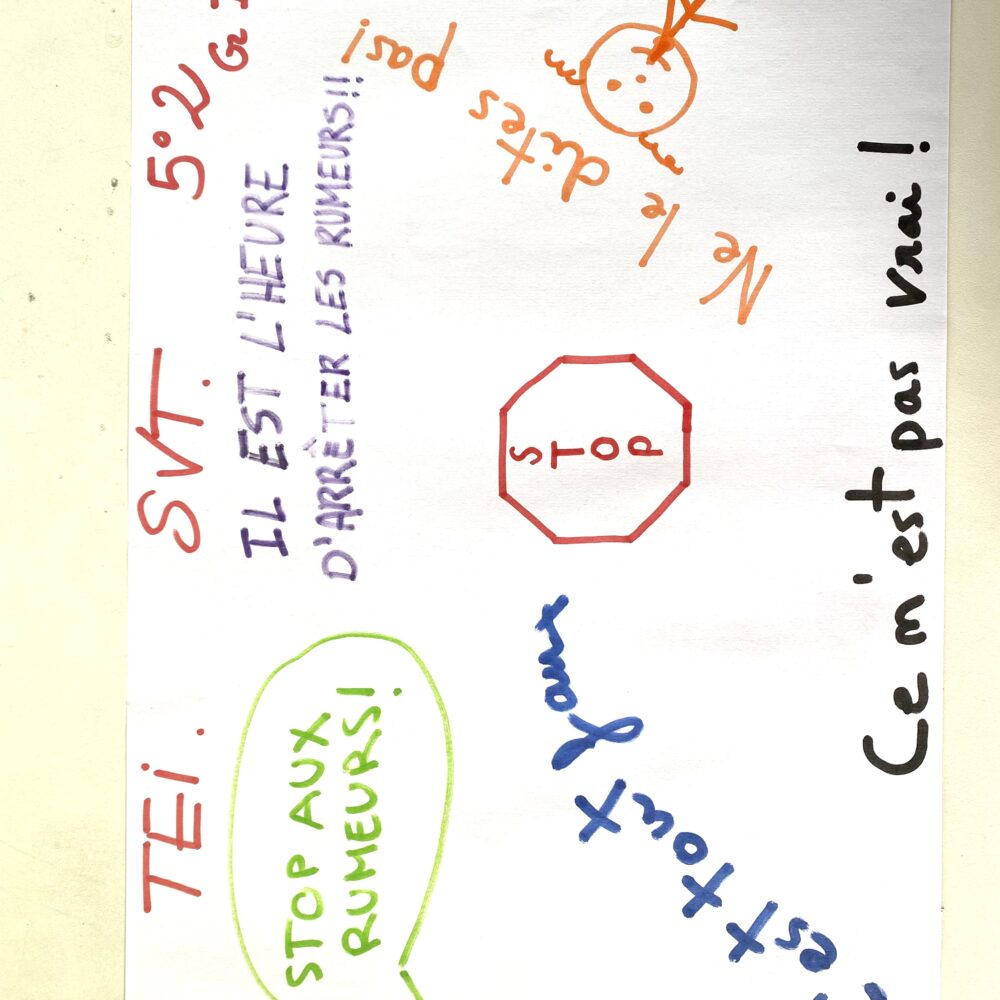 TEi. SVT. 5°2 Gr
IL EST L'HEURE
D'ARRÊTER LES RUMEURS!!
STOP AUX
RUMEURS!
Ne le dites pas!
STOP
est tout faux
Ce n'est pas vrai !